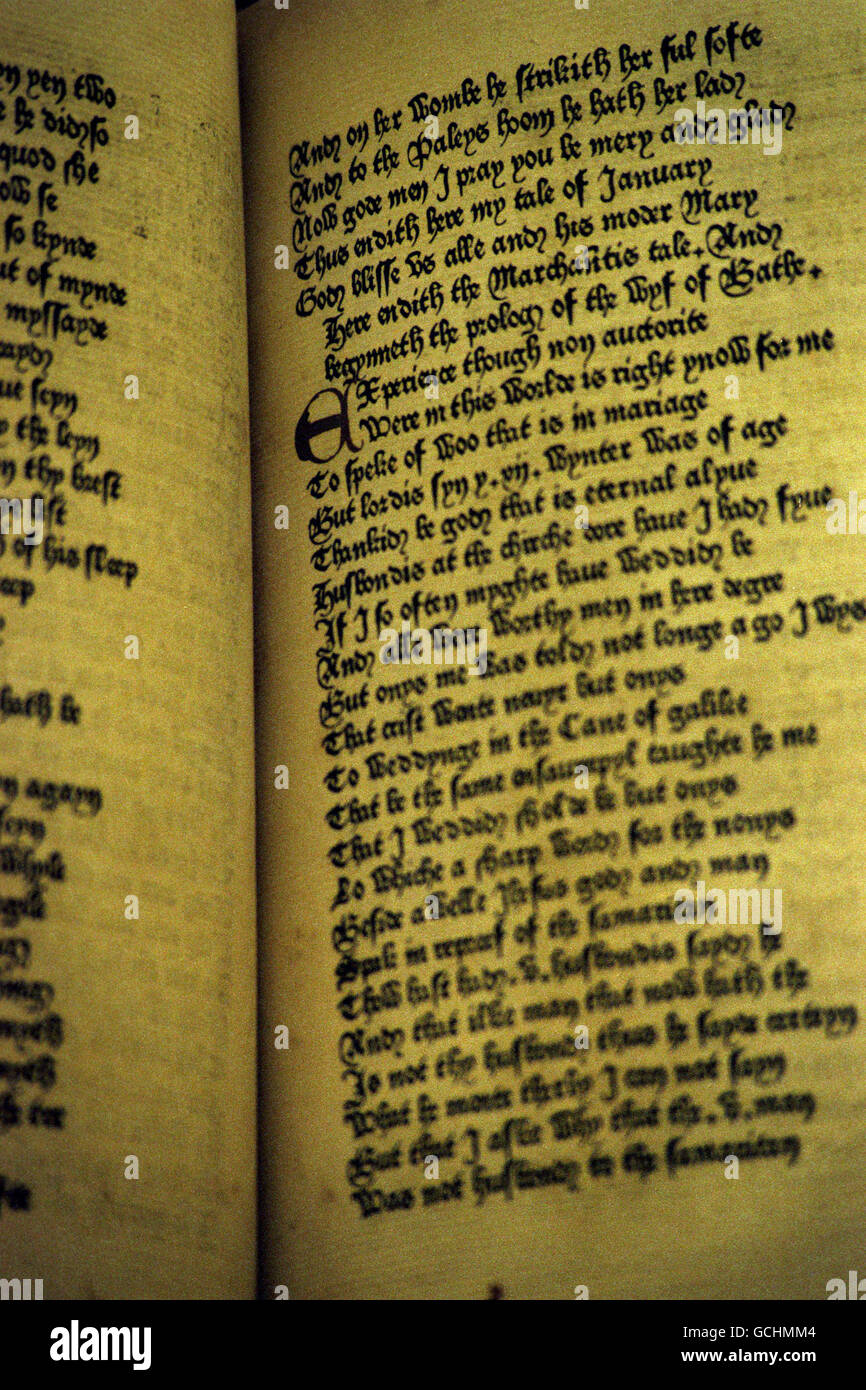 yen two
he didyso
quod she
se
so kynde
out of mynde
myssayde
seyn
the leyn
thy brest
of his sleep
hath be
agayn
seyn
Andy on her wombe he strikith her ful softe
Andy to the Paleys hoom he hath her lady
Now gode men I pray you be mery andy glady
Thus endith here my tale of January
Gody blisse vs alle andy his moder Mary
Here endith the Marchantis tale. Andy
begynneth the prology of the wyf of Bathe.
EXperience though non auctorite
Were in this worlde is right ynow for me
To speke of woo that is in mariage
But lordis syn y. vij. wynter was of age
Thankidy be gody that is eternal alyue
Husbondis at the chirche dore haue I hady fyue
If I so often myghte haue weddidy be
Andy alle were worthy men in here degre
But onys me was toldy not longe a go I wys
That crist wente neuyr but onys
To weddynge in the Cane of galilee
That be the same ensaumpyl taughte he me
That I weddidy sholde be but onys
Lo whiche a sharp wordy for the nonys
Beside a welle Jhesus gody andy man
Spak in repreef of the samaritan
Thow hast hady .v. husbondis saydy he
Andy that ilke man that now hath the
Is not thy husbondy thus he sayde certeyn
What he mente therby I can not sayn
But that I aske why that the .v. man
Was not husbondy to the samaritan
alamy
alamy
Image ID: GCHMM4
www.alamy.com